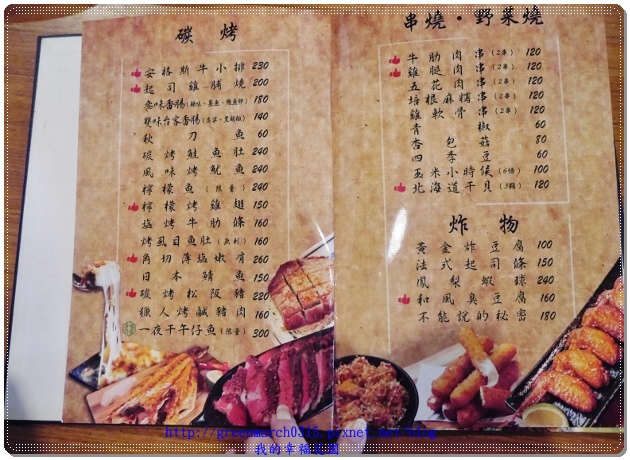 碳烤
安格斯牛小排 230
起司雞腿燒 200
参味香腸(辣味、墨魚、飛魚卵) 180
雙味台客香腸(蒜苗、黑胡椒) 140
秋刀魚 60
碳烤鮭魚肚 240
風味烤魷魚 240
檸檬魚(限量) 240
檸檬烤雞翅 150
塩烤牛肋條 160
烤虱目魚肚(無刺) 160
角切薄塩嫩肩 260
日本鯖魚 150
碳烤松阪豬 220
獵人烤鹹豬肉 160
一夜干午仔魚(限量) 300
串燒・野菜燒
牛肋肉串(2串) 120
雞腿肉串(2串) 120
五花肉串(2串) 120
培根麻糬串(2串) 120
雞軟骨串(2串) 120
青椒 60
杏包菇 80
四季豆 60
玉米小時候(6條) 100
北海道干貝(3顆) 120
炸物
黃金炸豆腐 100
法式起司條 150
鳳梨蝦球 240
和風臭豆腐 160
不能說的秘密 180
http://greenmarch0315.pixnet.net/blog
我的幸福花園